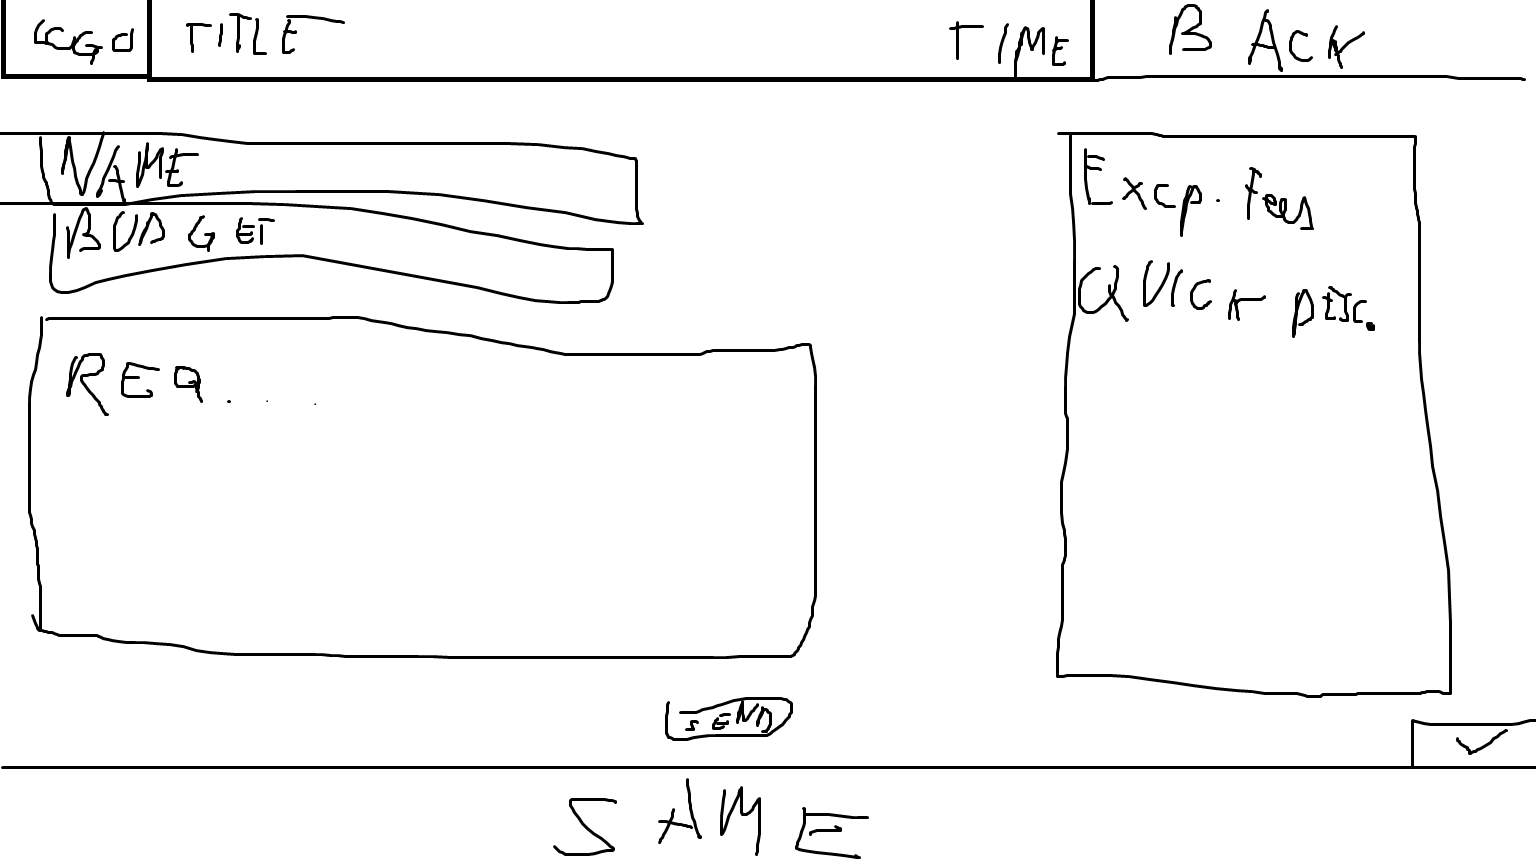 LOGO TITLE TIME BACK
NAME
BUDGET
REQ....
Excp. Fees
QUICK DISC.
SEND
SAME